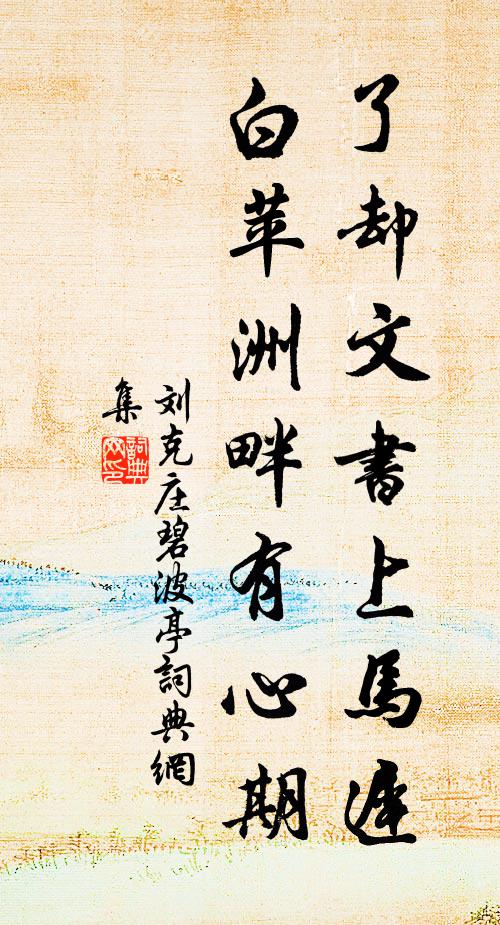 了却文書上馬遲
白苹洲畔有心期
刘克庄碧波亭詞典網
集
詞典网印